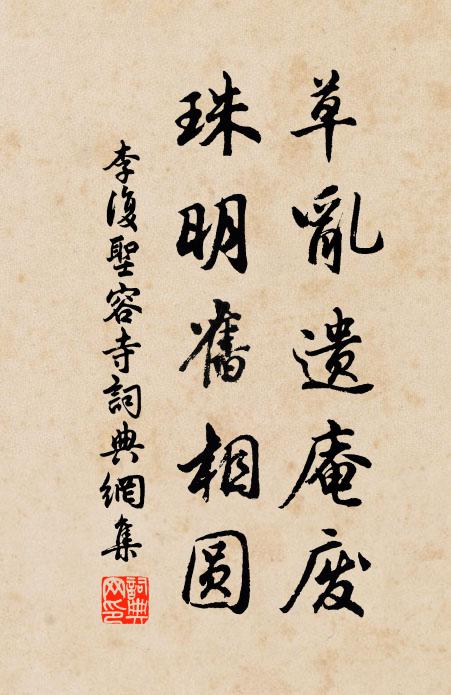 草亂遺庵废
珠明舊相圆
李復聖容寺詞典網集
詞典網印